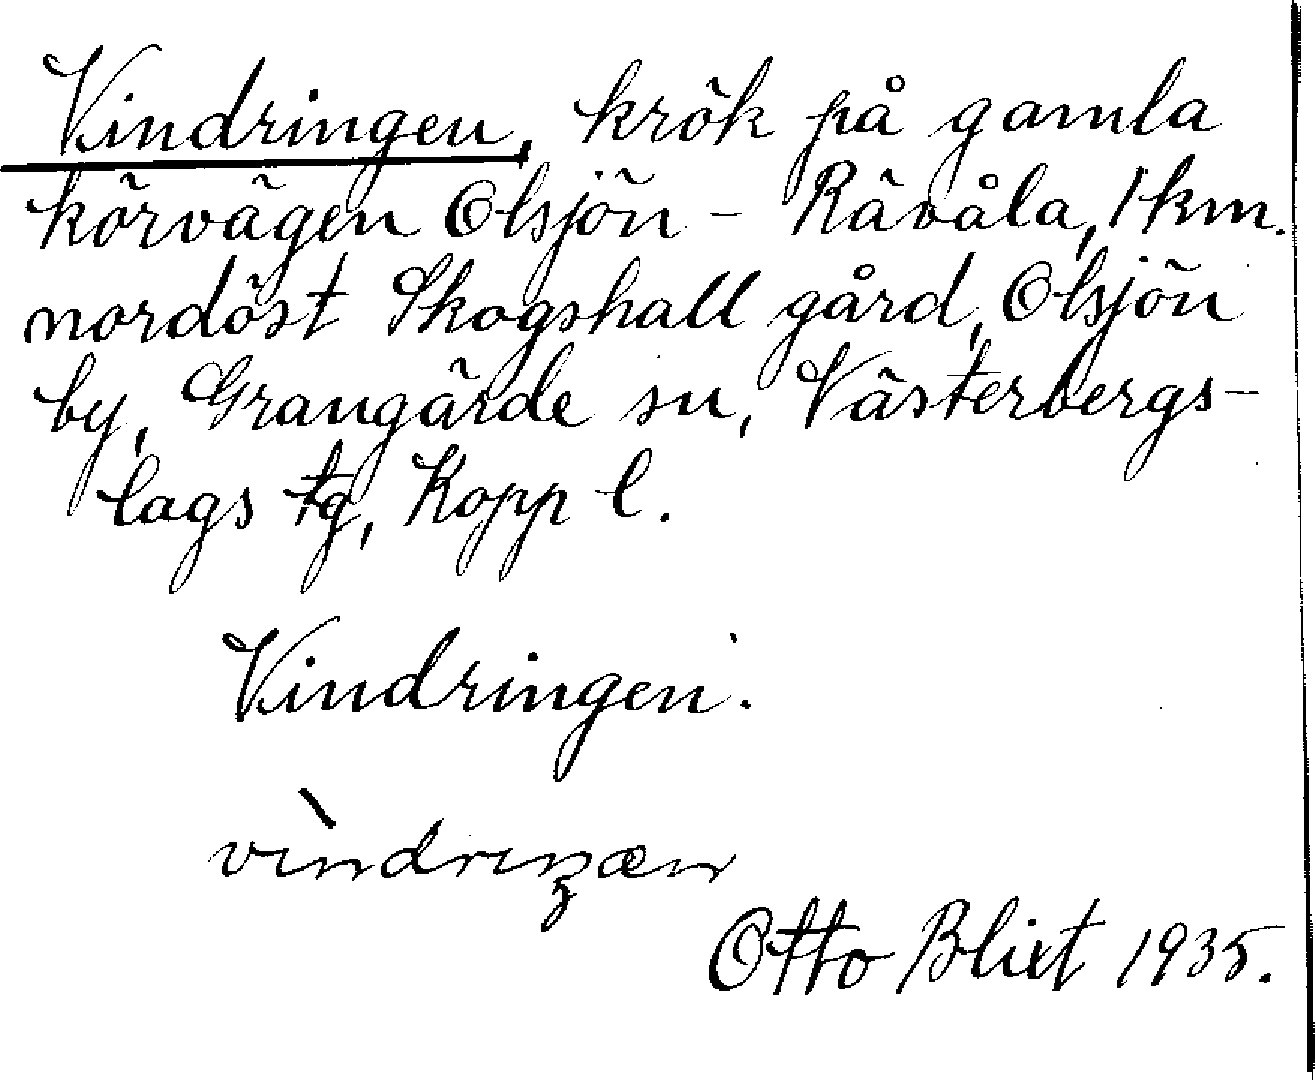 Vindringen, krök på gamla
körvägen Olsjön - Rävåla, 1 km.
nordöst Skogshall gård, Olsjön
by, Grangärde sn, Västerbergs-
lags tg, Kopp l.
Vindringen.
vìndriŋæn
Otto Blixt 1935.